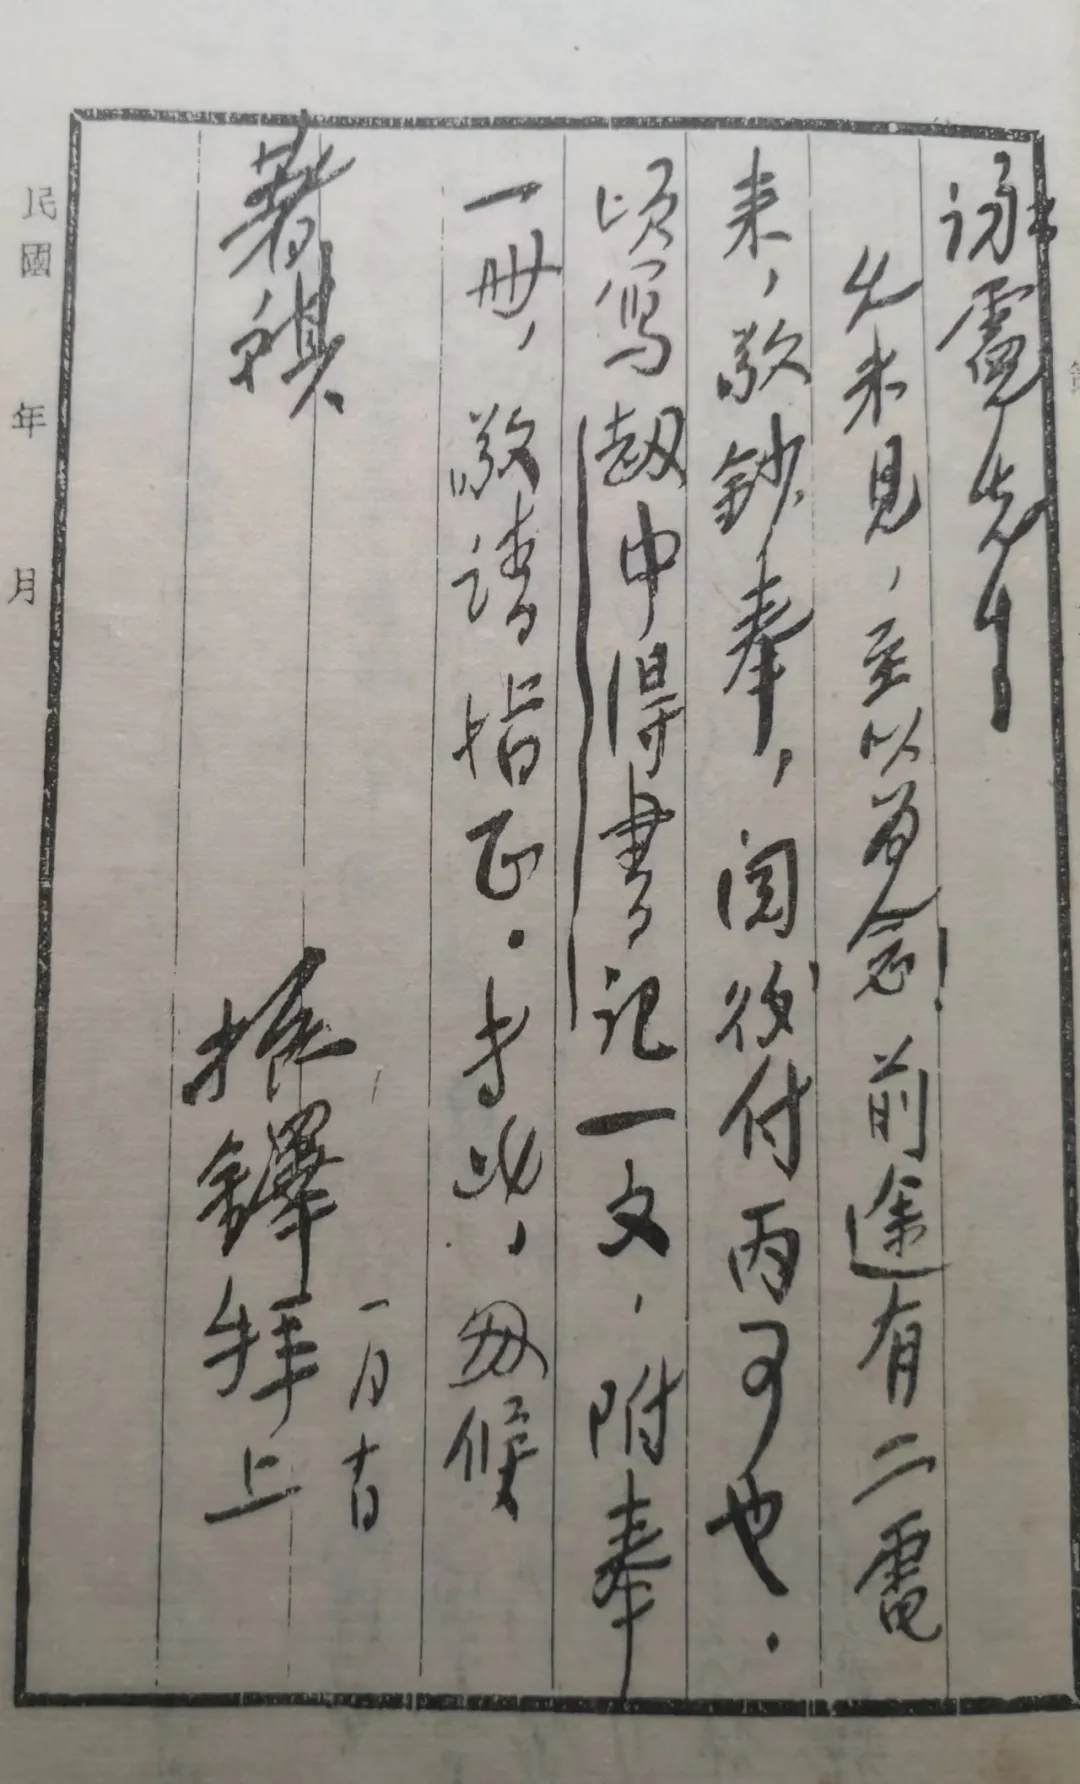 詠霓先生
久未見，至以為念！前途有二電
来，敬鈔奉，閱後付丙可也．
頃寫劫中得書記一文，附奉
一冊，敬請指正．專此，匆候
著祺
振鐸拜上
一月十日
民國 年 月